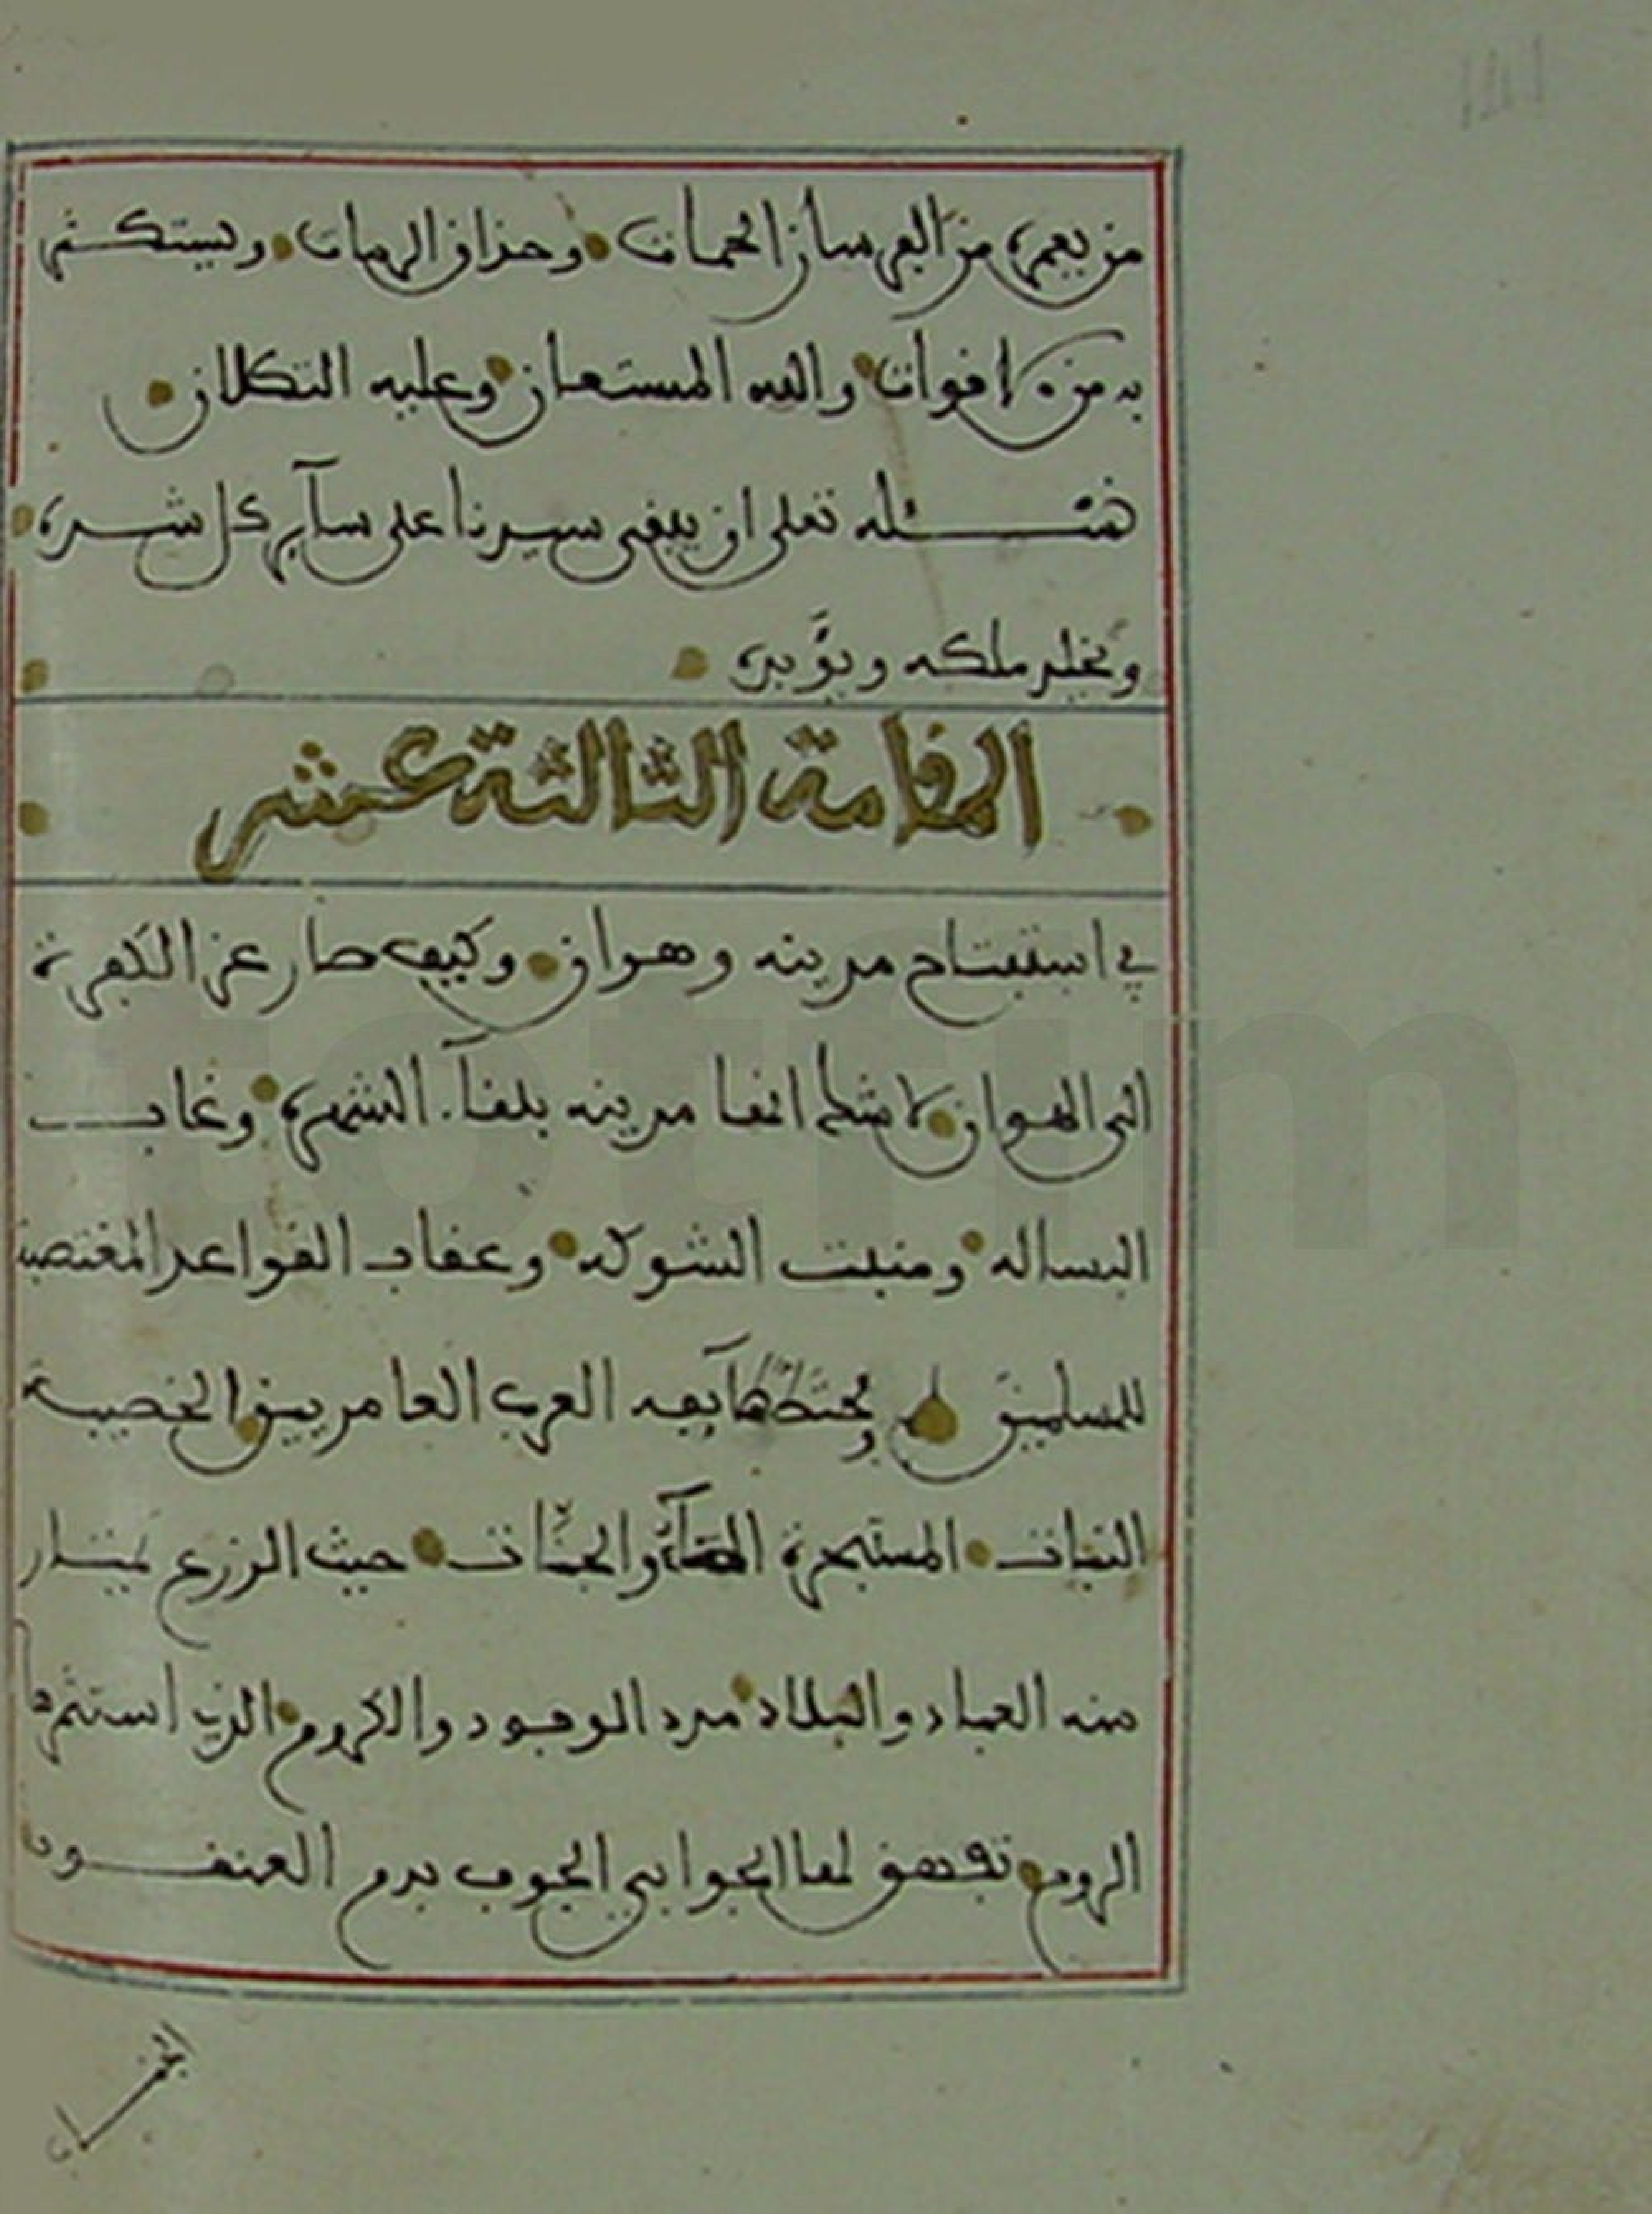 من يعمره من الفرسان الحمات وحذاق الرمات ويستكثر
به من الاقوات والله المستعان وعليه التكلان
نسئله تعلى ان يبقى سيدنا على سآير كل شىء
ويخلد ملكه ويؤيده
المقامة الثالثة عشر
في استفتاح مدينه وهران وكيف صار عن الكفرة
الى الهوان لا شك انها مدينه بلقآء الشهره وغاب
البساله ومنبت الشوكه وعقاب القواعد المغتصبة
للمسلمين طآيفه العرب العامريين الخصيبة
النبات المستبحرة والجنات حيث الزرع يمتار
منه العباد والبلاد مدد الوجود والكروم الذي استثمرها
الروم تفهق لها الجوابي الجوب بدم العنقود
totfim